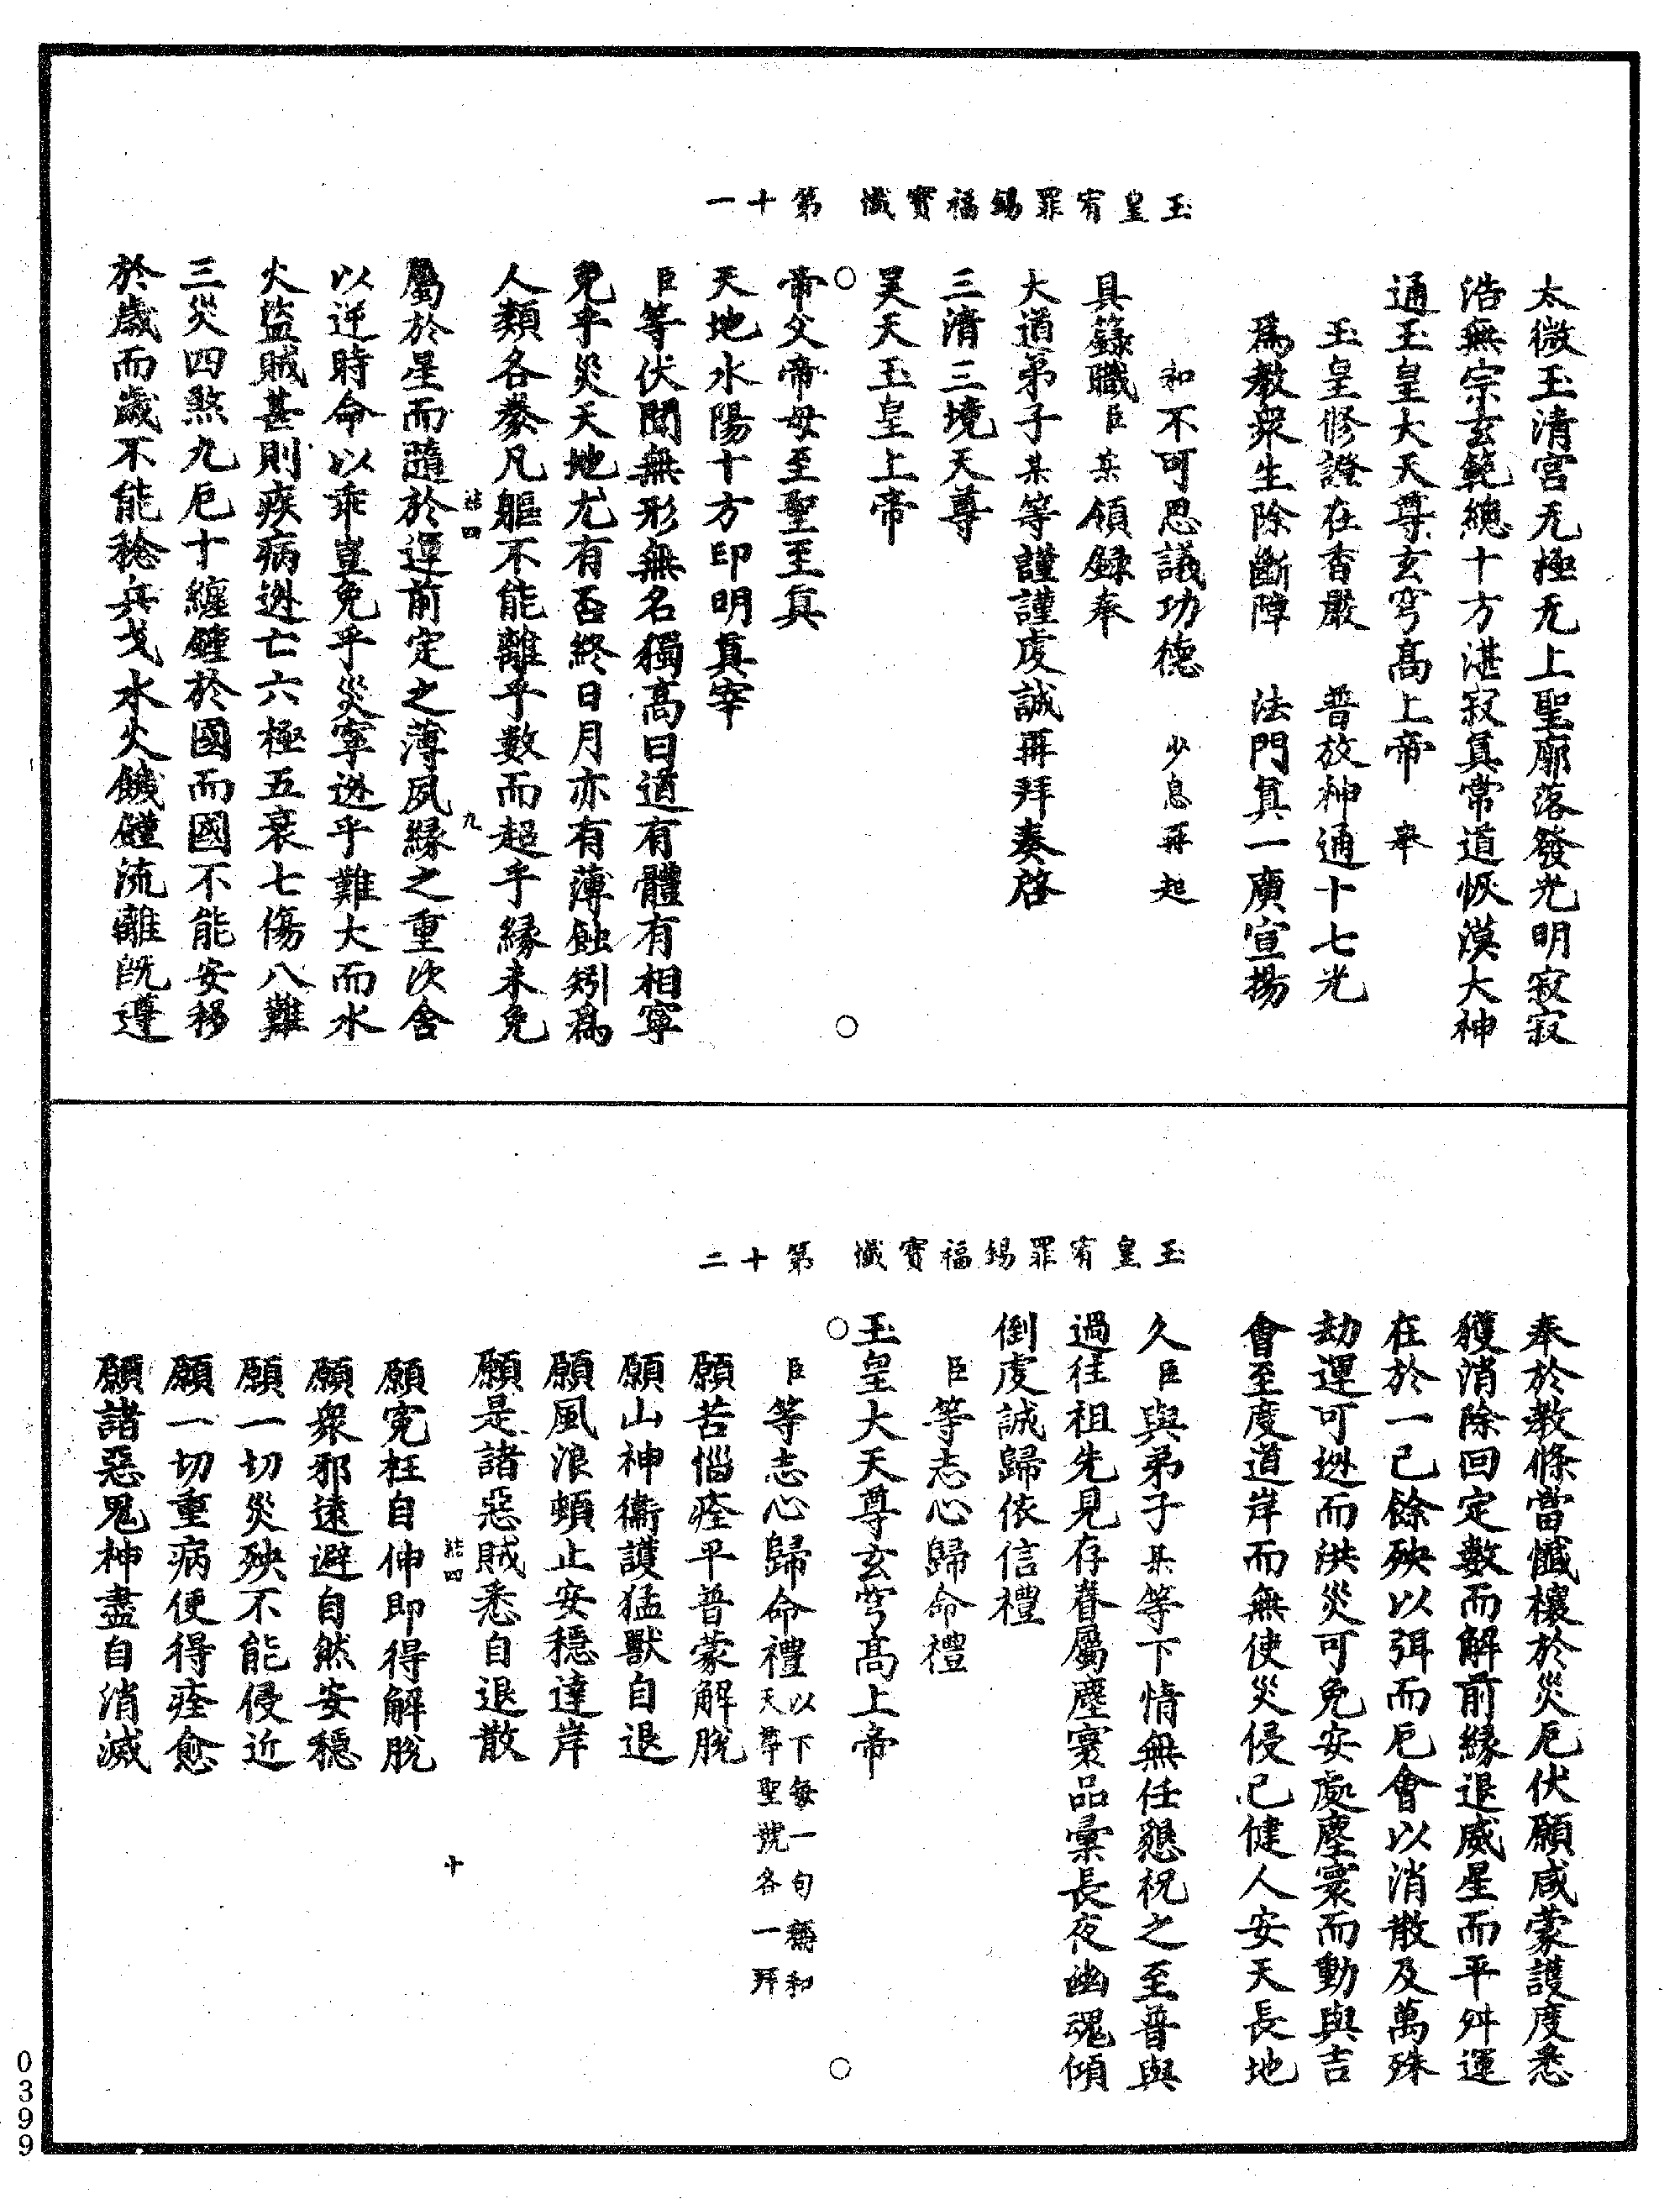 玉皇宥罪錫福寶懺　第十一
太微玉清宮无極无上聖廓落發光明寂寂
浩無宗玄範總十方湛寂真常道恢漠大神
通玉皇大天尊玄穹高上帝　舉
玉皇修證在香嚴　普放神通十七光
爲教衆生除斷障　法門真一廣宣揚
和不可思議功德　少息再起
具籙職臣某領錄奉
大道弟子某等謹謹虔誠再拜奏啓
三清三境天尊
昊天玉皇上帝
帝父帝母至聖至真
天地水陽十方印明真宰
臣等伏聞無形無名獨高曰道有體有相寧
免乎災天地尤有否終日月亦有薄蝕矧爲
人類各豢凡軀不能離乎數而超乎緣未免
結四　九
屬於星而隨於運前定之薄夙緣之重次舍
以逆時命以乖豈免乎災寧逃乎難大而水
火盜賊甚則疾病逃亡六極五衰七傷八難
三災四煞九厄十纏鍾於國而國不能安移
於歲而歲不能稔兵戈水火饑饉流離旣遵
玉皇宥罪錫福寶懺　第十二
奉於教條當懺禳於災厄伏願咸蒙護度悉
獲消除回定數而解前緣退威星而平舛運
在於一己餘殃以弭而厄會以消散及萬殊
劫運可逃而洪災可免安處塵寰而動與吉
會至度道岸而無使災侵己健人安天長地
久臣與弟子某等下情無任懇祝之至普與
過往祖先見存眷屬塵寰品彙長夜幽魂傾
倒虔誠歸依信禮
臣等志心歸命禮
玉皇大天尊玄穹高上帝
臣等志心歸命禮以下每一句稱和天尊聖號各一拜
願苦惱痊平普蒙解脫
願山神衞護猛獸自退
願風浪頓止安穩達岸
願是諸惡賊悉自退散
結四　十
願寃枉自伸即得解脫
願衆邪遠避自然安穩
願一切災殃不能侵近
願一切重病便得痊愈
願諸惡鬼神盡自消滅
0399